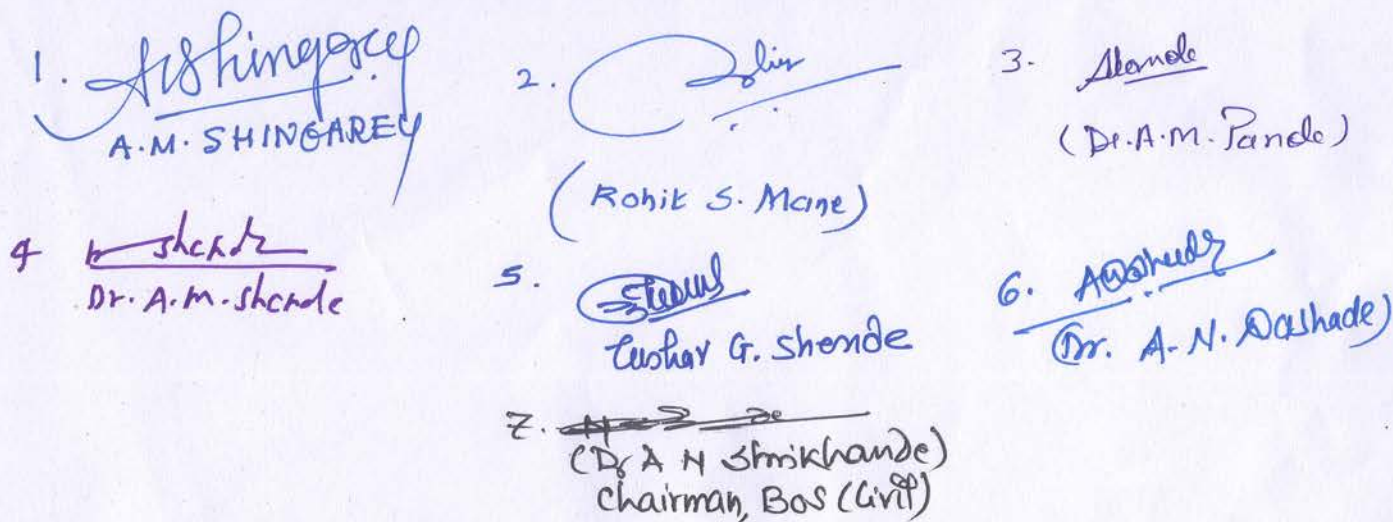 1. AShingarey
A.M. SHINGAREY
2.
(Rohit S. Mane)
3.
(Dr. A.M. Pande)
4 Shende
Dr. A.M. Shende
5.
Tushar G. Shende
6.
(Dr. A.N. Dashade)
7.
(Dr A N Shrikhande)
Chairman, BOS (Civil)